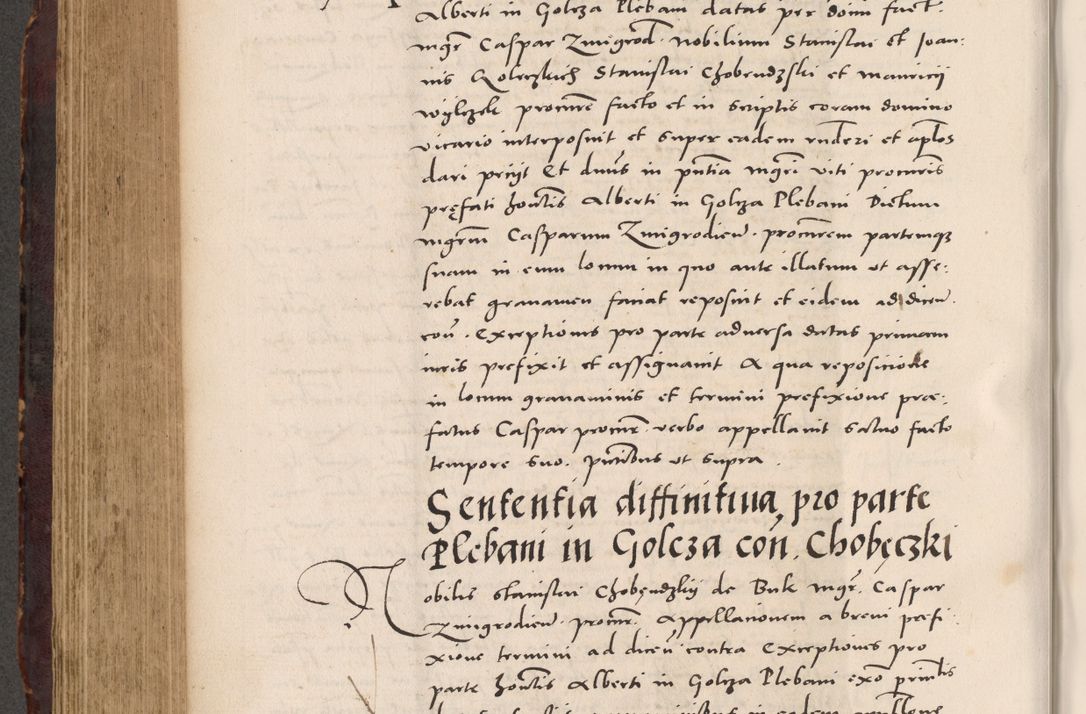 Alberti in Golcza Plebani datas per domi fact.
mgr Caspar Zmigrod. nobilium Stanislai et Joan:
nis Golczkich Stanislai Chobendzski et mauricii
wylczek procure facto et in scriptis coram domino
vicario interposuit et super eadem rnderi et aplos
dari peciit Et dnus in pntia mgri viti procuris
pręfati hontis Alberti in Golcza Plebani Dictum
mgrm Casparum Zmigrodien. procurem partemqz
suam in eum locum in quo ante illatum ut asse:
rebat gravamen faciat reposuit et eidem ad dicen.
con. Exceptiones pro parte adversa datas primam
iuris prefixit et assignavit A qua reposicione
in locum gravaminis et termini prefixione præ:
fatus Caspar procur. verbo appellavit salvo facto
tempore suo. pntibus ut supra.
Sententia diffinitiua pro parte
Plebani in Golcza con. Chobęczki
Nobilis Stanislai Chobendzkij de Buk mgr. Caspar
Zmigrodien. procur. Appellationem a brevi præfi
xione termini ad dicen contra Exceptiones pro
parte hontis Alberti in Golcza Plebani exo printis